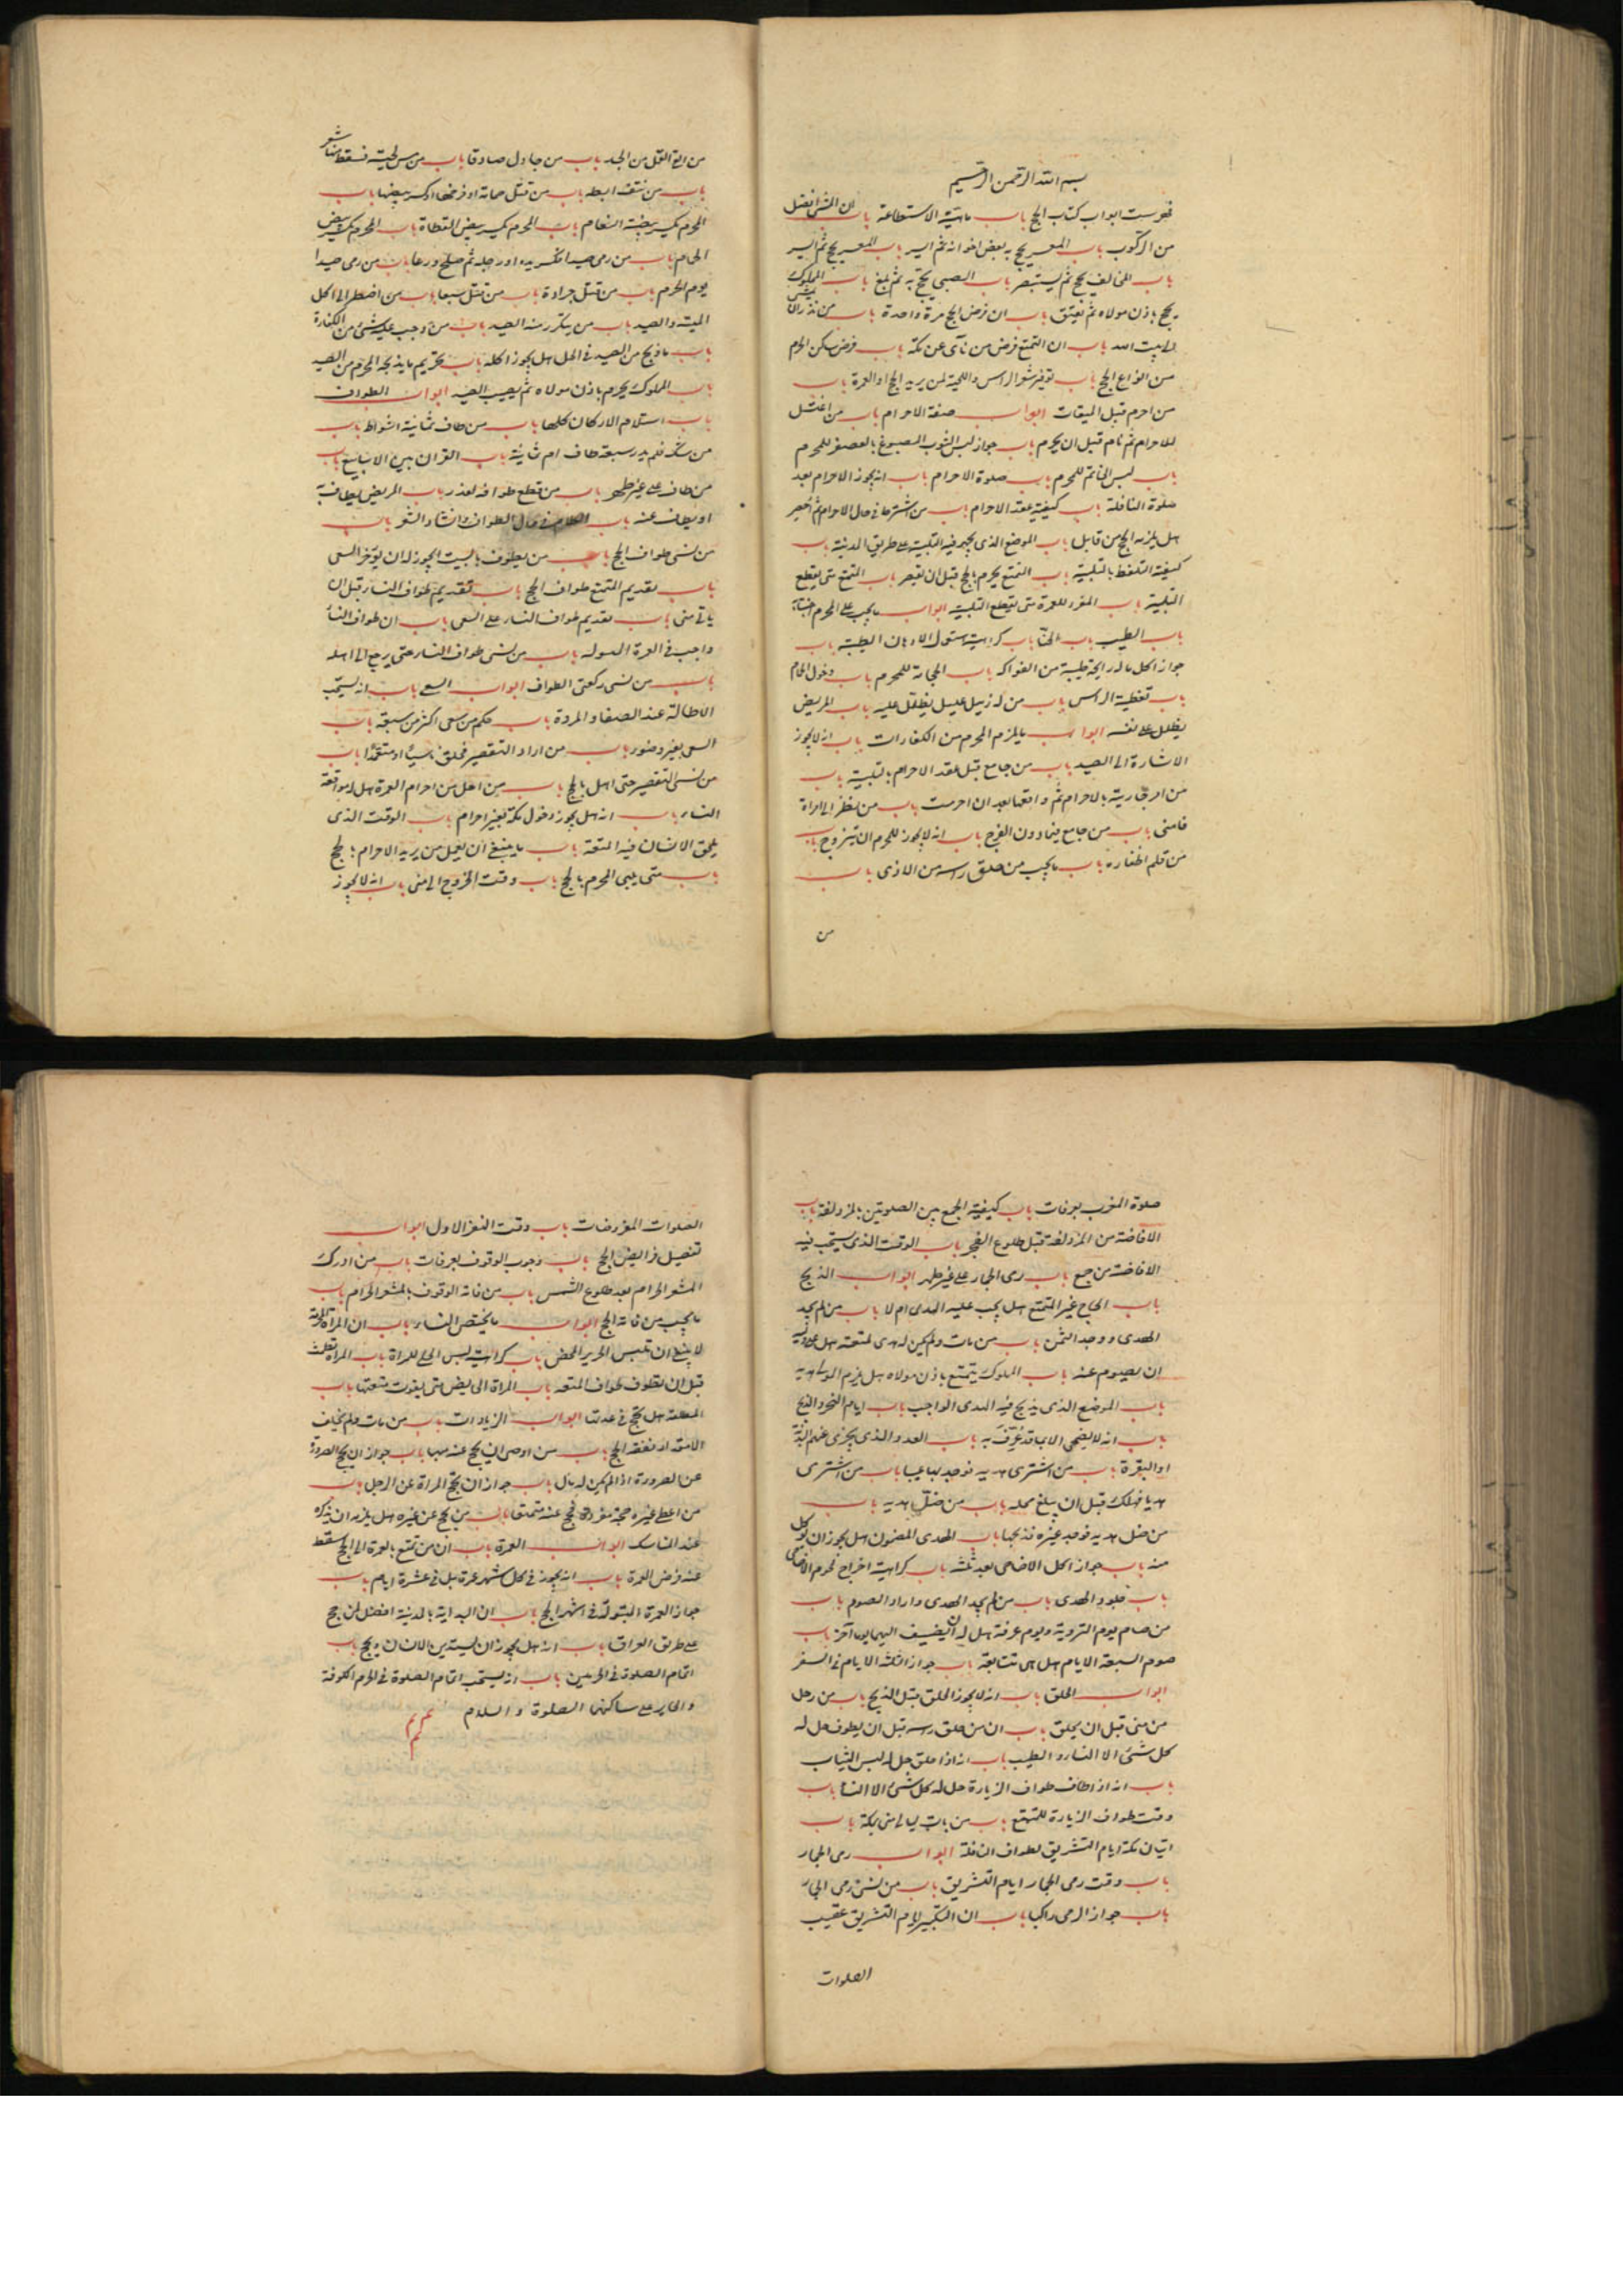 بسم الله الرحمن الرحیم
فهرست ابواب کتاب الحج باب ماهیة الاستطاعة باب ان المشی افضل
من الرکوب باب المعسر یحج به بعض اخوانه ثم ایسر باب المعسر یحج ثم ایسر
باب المخالف یحج ثم یستبصر باب الصبی یحج به ثم بلغ باب المملوک
یحج باذن مولاه ثم یعتق باب ان فرض الحج مرة واحدة باب من نذر ان یمشی
الی بیت الله باب ان التمتع فرض من نأی عن مکة باب فرض من سکن الحرم
من انواع الحج باب توفیر شعر الراس واللحیة لمن یرید الحج او العمرة باب
من احرم قبل المیقات ابواب صفة الاحرام باب من اغتسل
للاحرام ثم نام قبل ان یحرم باب جواز لبس الثوب المصبوغ بالعصفر للمحرم
باب لبس الخاتم للمحرم باب صلوة الاحرام باب انه یجوز الاحرام بعد
صلوة النافلة باب کیفیة عقد الاحرام باب من اشترط فی حال الاحرام ثم احصر
هل یلزمه الحج من قابل باب الموضع الذی یجهر فیه التلبیة علی طریق المدینة باب
کیفیة التلفظ بالتلبیة باب المتمتع یحرم بالحج قبل ان یقصر باب المتمتع متی یقطع
التلبیة باب المفرد للعمرة متی یقطع التلبیة ابواب ما یجب علی المحرم اجتنابه
باب الطیب باب الحنا باب کراهیة استعمال الادهان الطیبة باب
جواز اکل ما له رایحة طیبة من الفواکه باب الحجامة للمحرم باب دخول الحمام
باب تغطیة الراس باب من له زمیل علیل یظلل علیه باب المریض
یظلل علی نفسه ابواب ما یلزم المحرم من الکفارات باب انه لا یجوز
الاشارة الی الصید باب من جامع قبل عقد الاحرام بالتلبیة باب
من امر جاریته بالاحرام ثم واقعها بعد ان احرمت باب من نظر الی امراة
فامنی باب من جامع فیما دون الفرج باب انه لا یجوز للمحرم ان یتزوج باب
من قلم اظفاره باب ما یجب من حلق راسه من الاذی باب
من
من القی القمل من الجسد باب من جادل صادقا باب من مس لحیته فسقط منها شعر
باب من نتف ابطه باب من قتل حمامة او فرخها او کسر بیضها باب
المحرم یکسر بیضة النعام باب المحرم یکسر بیض القطاة باب المحرم یکسر بیض
الحمام باب من رمی صیدا فکسر یده او رجله ثم صلح ورعا باب من رمی صیدا
یوم الحرم باب من قتل جرادة باب من قتل سبعا باب من اضطر الی اکل
المیتة والصید باب من یتکرر منه الصید باب من وجب علیه شئ من الکفارة
باب ما ذبح من الصید فی الحل هل یجوز اکله باب تحریم ما یذبحه المحرم من الصید
باب المملوک یحرم باذن مولاه ثم یصیب الصید ابواب الطواف
باب استلام الارکان کلها باب من طاف ثمانیة اشواط باب
من شک فلم یدر سبعة طاف ام ثمانیة باب القران بین الاسابیع باب
من طاف علی غیر طهر باب من قطع طوافه لعذر باب المریض یطاف به
او یطاف عنه باب الکلام فی حال الطواف وانشاد الشعر باب
من نسی طواف الحج باب من یطوف بالبیت ایجوز له ان یؤخر السعی
باب تقدیم المتمتع طواف الحج باب تقدیم طواف النساء قبل ان
یاتی منی باب تقدیم طواف النساء علی السعی باب ان طواف النساء
واجب فی العمرة المبتولة باب من نسی طواف النساء حتی یرجع الی اهله
باب من نسی رکعتی الطواف ابواب السعی باب انه یستحب
الاطالة عند الصفا والمروة باب حکم من سعی اکثر من سبعة باب
السعی بغیر وضوء باب من اراد التقصیر فحلق ناسیا او متعمدا باب
من نسی التقصیر حتی اهل بالحج باب من احل من احرام العمرة هل له مواقعة
النساء باب انه هل یجوز دخول مکة بغیر احرام باب الوقت الذی
یلحق الانسان فیه المتعة باب ما ینبغی ان یعمل من یرید الاحرام بالحج
باب متی یلبی المحرم بالحج باب وقت الخروج الی منی باب انه لا یجوز
صلوة المغرب بعرفات باب کیفیة الجمع بین الصلوتین بالمزدلفة باب
الافاضة من المزدلفة قبل طلوع الفجر باب الوقت الذی یستحب فیه
الافاضة من جمع باب رمی الجمار علی غیر طهر ابواب الذبح
باب الحاج غیر المتمتع هل یجب علیه الهدی ام لا باب من لم یجد
الهدی ووجد الثمن باب من مات ولم یکن له هدی لمتعته هل علی ولیه
ان یصوم عنه باب المملوک یتمتع باذن مولاه هل یلزم المولی هدیه
باب الموضع الذی یذبح فیه الهدی الواجب باب ایام النحر والذبح
باب انه لا یضحی الا بما قد عرف به باب العدد الذی یجزی عنهم البدنة
او البقرة باب من اشتری هدیه فوجد بها عیبا باب من اشتری
هدیا فهلک قبل ان یبلغ محله باب من ضل هدیه باب
من ضل هدیه فوجد غیره فذبحها باب الهدی المضمون هل یجوز ان یؤکل
منه باب جواز اکل الاضاحی بعد ثلثة باب کراهیة اخراج لحوم الاضاحی
باب جلود الهدی باب من لم یجد الهدی واراد الصوم باب
من صام یوم الترویة ویوم عرفة هل له ان یضیف الیهما یوما آخر باب
صوم السبعة الایام هل هی متتابعة باب جواز الثلثة الایام فی السفر
ابواب الحلق باب انه لا یجوز الحلق قبل الذبح باب من رحل
من منی قبل ان یحلق باب ان من حلق راسه قبل ان یطوف حل له
کل شئ الا النساء والطیب باب انه اذا حلق حل له لبس الثیاب
باب انه اذا طاف طواف الزیارة حل له کل شئ الا النساء باب
وقت طواف الزیارة للمتمتع باب من بات لیالی منی بمکة باب
اتیان مکة ایام التشریق لطواف النافلة ابواب رمی الجمار
باب وقت رمی الجمار ایام التشریق باب من نسی رمی الجمار
باب جواز الرمی راکبا باب ان التکبیر ایام التشریق عقیب
الصلوات
الصلوات المفروضات باب وقت النفر الاول ابواب
تفصیل فرایض الحج باب وجوب الوقوف بعرفات باب من ادرک
المشعر الحرام بعد طلوع الشمس باب من فاته الوقوف بالمشعر الحرام باب
ما یجب من فاته الحج ابواب ما یختص النساء باب ان المراة المحرمة
لا ینبغی ان تلبس الحریر المحض باب کراهیة لبس الحلی للمراة باب المراة تطمث
قبل ان تطوف طواف المتعة باب المراة الحایض متی یفوت متعتها باب
المطلقة هل تحج فی عدتها ابواب الزیادات باب من مات ولم یخلف
الا مقدار نفقة الحج باب من اوصی ان یحج عنه مبهما باب جواز ان یحج الصرورة
عن الصرورة اذا لم یکن له مال باب جواز ان تحج المراة عن الرجل باب
من اعطی غیره حجة مفردة فحج عنه متمتعا باب من یحج عن غیره هل یلزمه ان یذکره
عند المناسک ابواب العمرة باب ان من تمتع بالعمرة الی الحج سقط
عنه فرض العمرة باب انه یجوز فی کل شهر عمرة بل فی عشرة ایام باب
جواز العمرة المبتولة فی اشهر الحج باب ان البدایة بالمدینة افضل لمن حج
علی طریق العراق باب انه هل یجوز ان یستدین الانسان ویحج باب
اتمام الصلوة فی الحرمین باب انه یستحب اتمام الصلوة فی الحرم الکوفة
والحایر علی ساکنها الصلوة والسلام